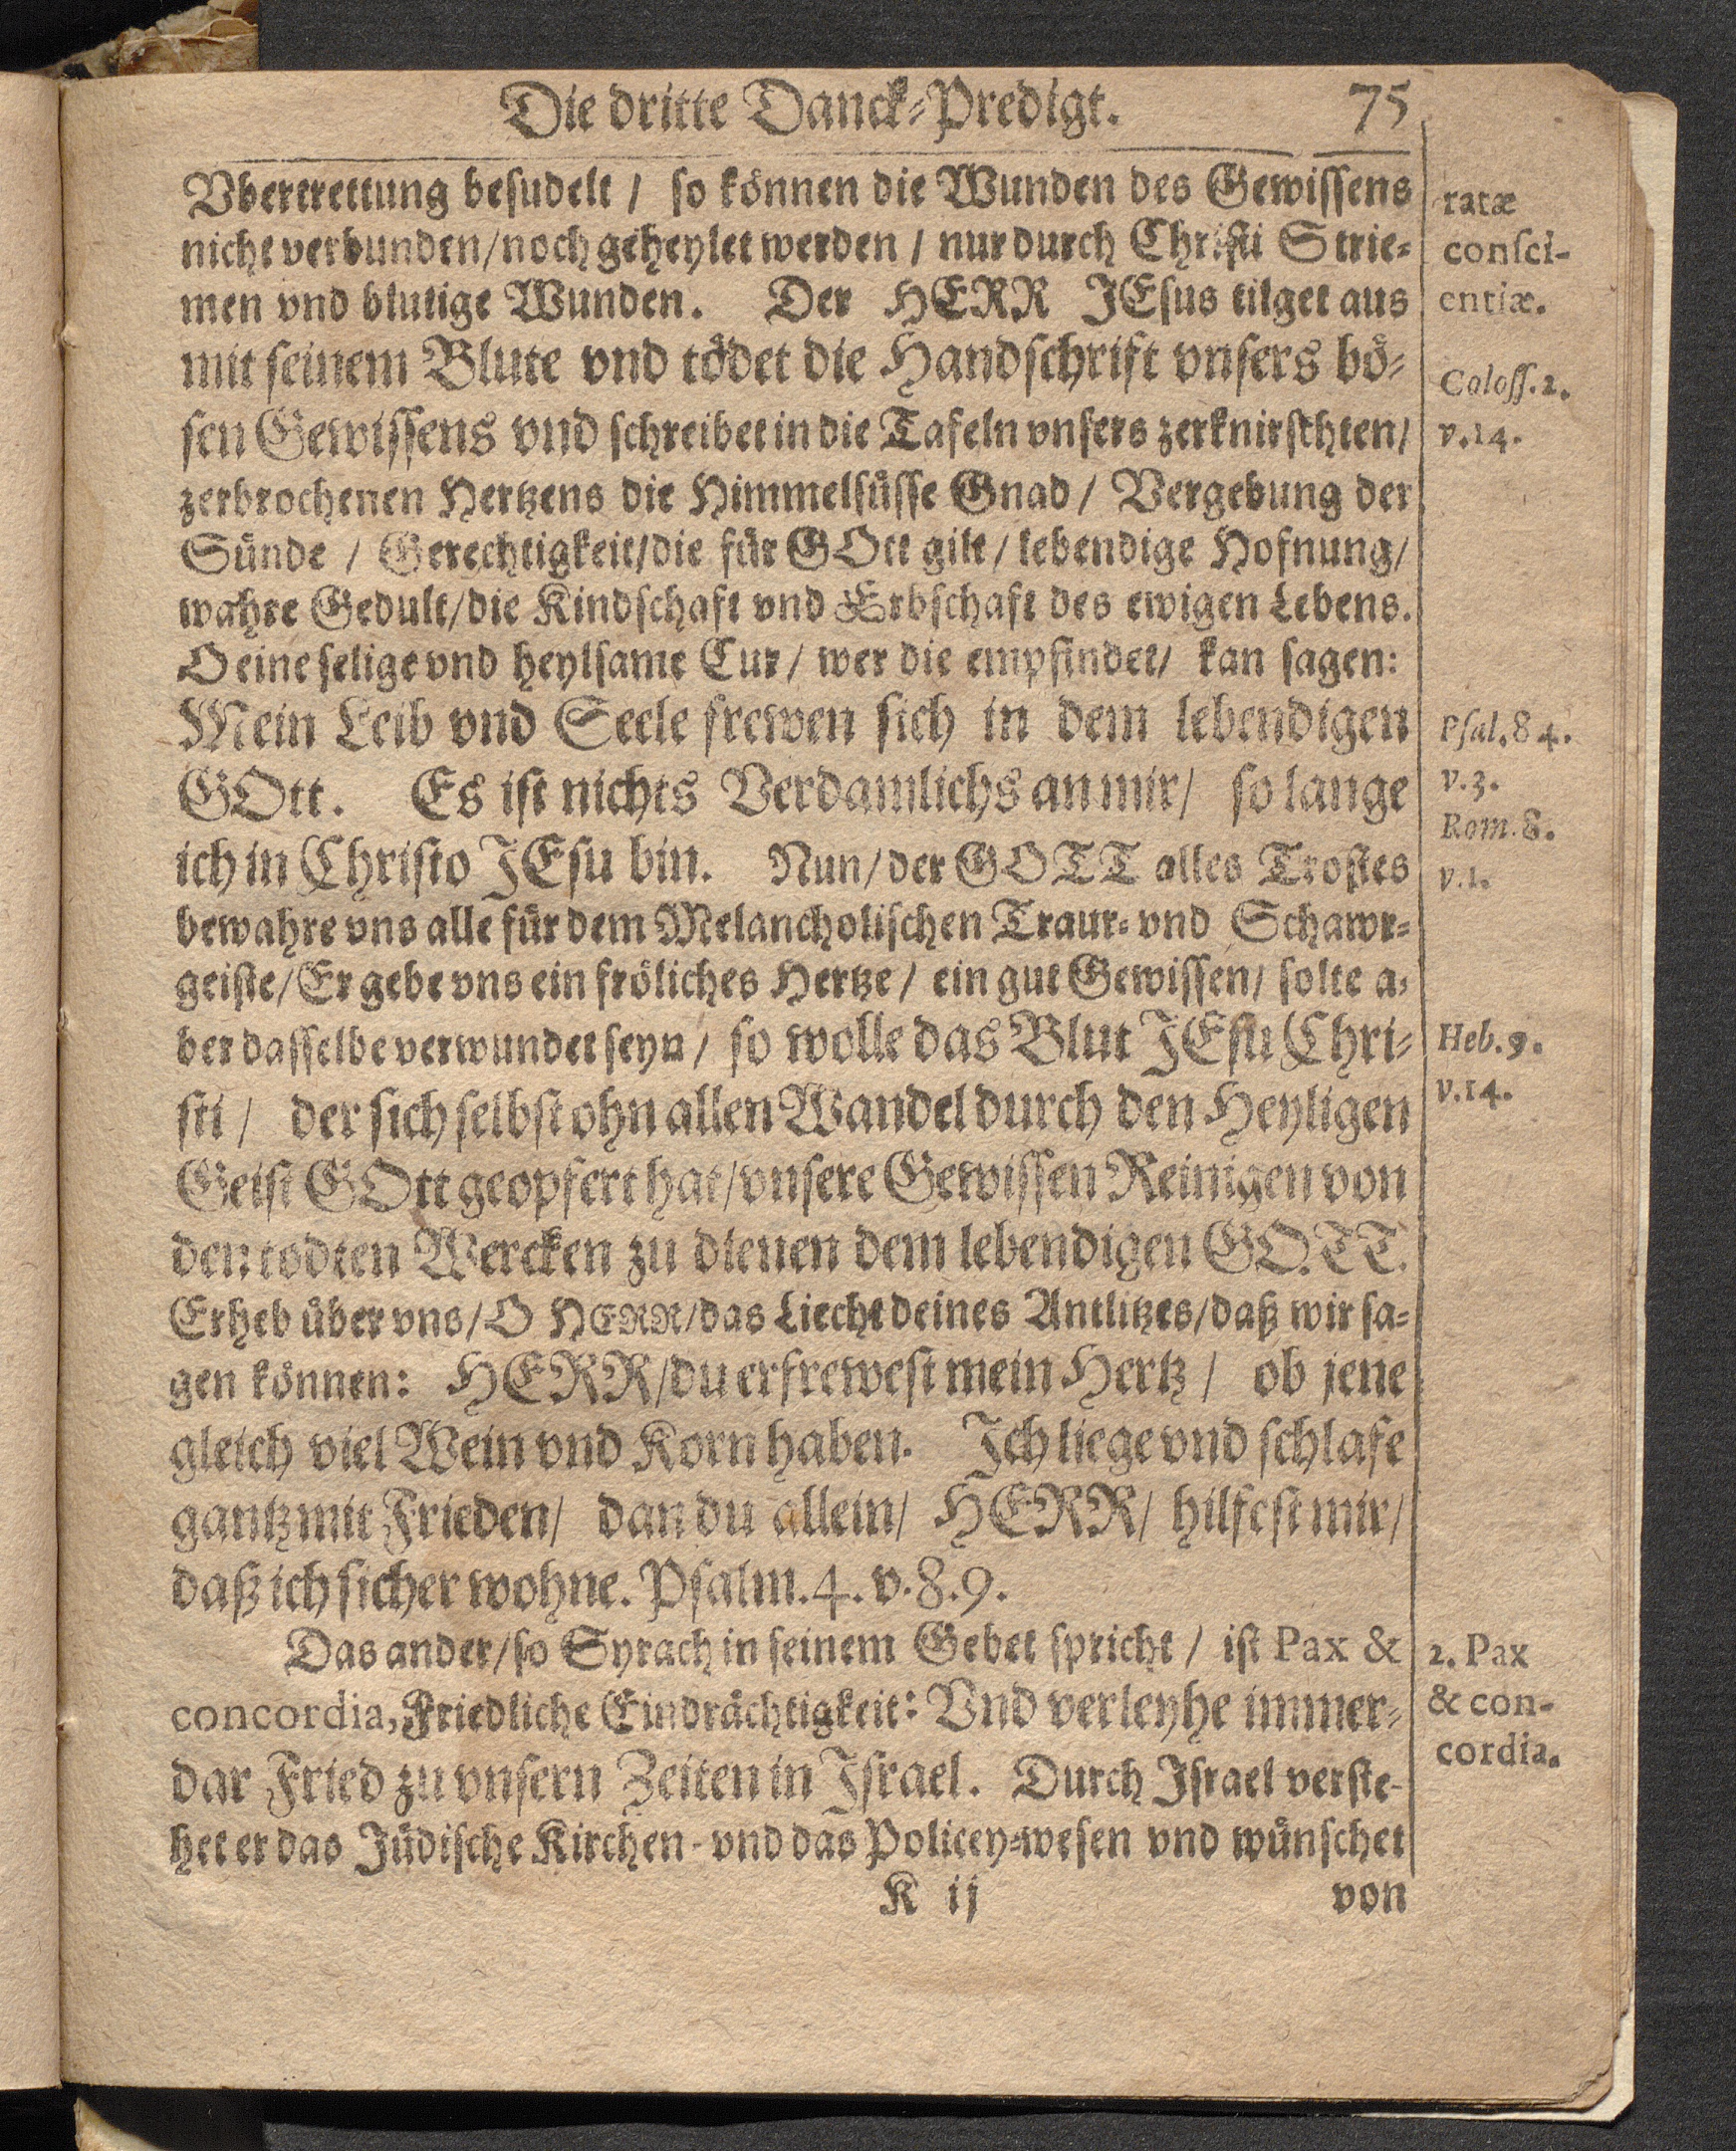 Die dritte Danck-Predigt. 75
Vbertrettung besudelt / so können die Wunden des Gewissens
nicht verbunden/noch geheylet werden / nur durch Christi Strie-
men vnd blutige Wunden. Der HERR JEsus tilget aus
mit seinem Blute vnd tödet die Handschrift vnsers bö-
sen Gewissens vnd schreibet in die Tafeln vnsers zerknirschten/
zerbrochenen Hertzens die Himmelsüsse Gnad / Vergebung der
Sünde / Gerechtigkeit/die für GOtt gilt / lebendige Hofnung/
wahre Gedult/die Kindschaft vnd Erbschaft des ewigen Lebens.
O eine selige vnd heylsame Cur / wer die empfindet/ kan sagen:
Mein Leib vnd Seele frewen sich in dem lebendigen
GOtt. Es ist nichts Verdamlichs an mir/ so lange
ich in Christo JEsu bin. Nun/der GOTT alles Trostes
bewahre vns alle für dem Melancholischen Traur- vnd Schawr-
geiste/Er gebe vns ein fröliches Hertze / ein gut Gewissen/ solte a-
ber dasselbe verwundet seyn / so wolle das Blut JEsu Chri-
sti / der sich selbst ohn allen Wandel durch den Heyligen
Geist GOtt geopfert hat/vnsere Gewissen Reinigen von
den todten Wercken zu dienen dem lebendigen GOTT.
Erheb über vns/O HERR/das Liecht deines Antlitzes/daß wir sa-
gen können: HERR/du erfrewest mein Hertz / ob jene
gleich viel Wein vnd Korn haben. Ich liege vnd schlafe
gantz mit Frieden/ dan du allein/ HERR/ hilfest mir/
daß ich sicher wohne. Psalm.4. v.8.9.
Das ander/so Syrach in seinem Gebet spricht / ist Pax &
concordia, Friedliche Eindrächtigkeit: Vnd verleyhe immer-
dar Fried zu vnsern Zeiten in Israel. Durch Israel verste-
het er das Jüdische Kirchen- vnd das Policey-wesen vnd wünschet
K ij von
ratæ
consci-
entiæ.
Coloss. 2.
v.14.
Psal. 84.
v.3.
Rom. 8.
v.1.
Heb. 9.
v.14.
2. Pax
& con-
cordia.